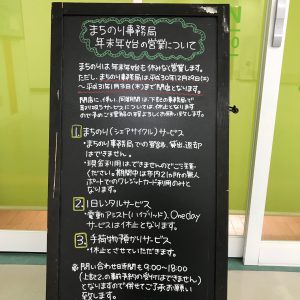 まちのり事務局
年末年始の営業について
まちのりは年末年始も休みなく営業します。
ただし、まちのり事務局は平成30年12月29日(土)
～平成31年1月3日(木)まで閉店となります。
閉店に伴い、同期間は下記の事務局で
取り扱うサービスについては休止となります
ので予めご理解の程よろしくお願い致します。
1. まちのり(シェアサイクル)サービス
・まちのり事務局での登録、貸出、返却
はできません。
・現金利用はできませんのでご注意
ください。期間中は市内21ヶ所の無人
ポートでのクレジットカード利用のみと
なります。
2. 1日レンタルサービス
・電動アシスト(ハイブリッド)、Oneday
サービスは休止となります。
3. 手荷物預かりサービス
・休止とさせていただきます。
お問い合わせ日時も9:00～18:00
(上記2.の事前予約の受付はできません)
となりますので併せてご了承お願い
致します。